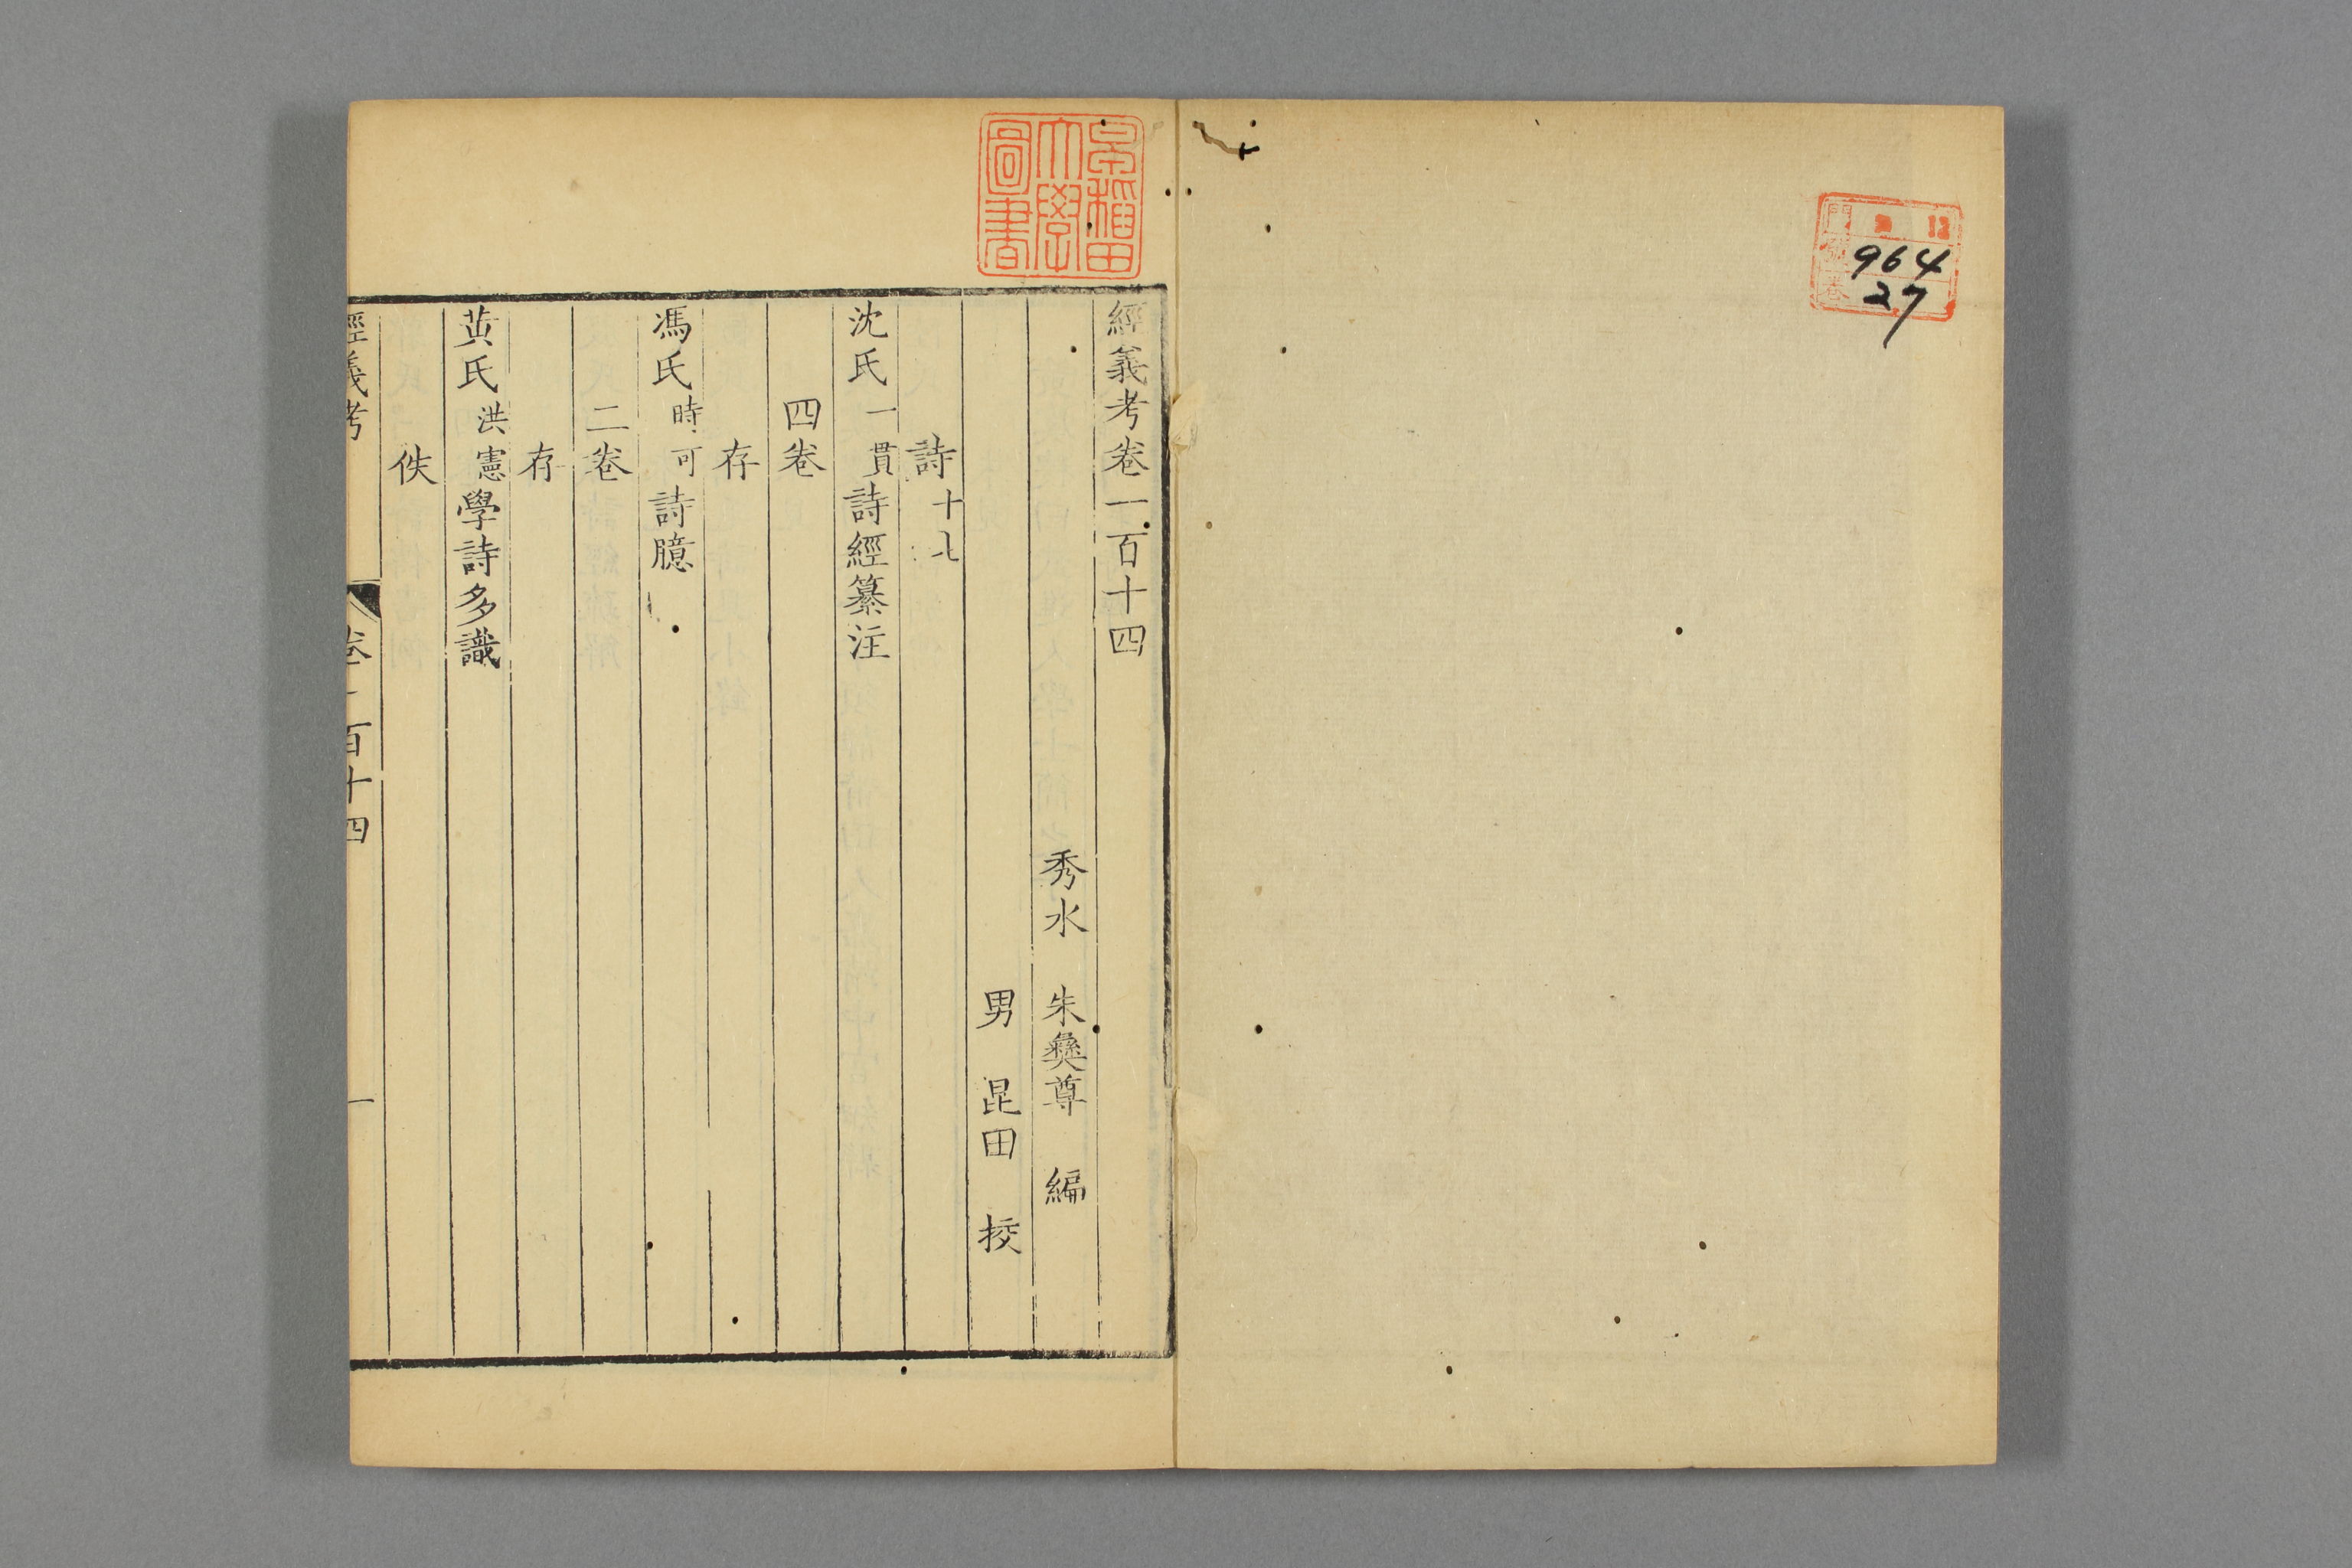 12
964
27
早稲田大學圖書
經義考卷一百十四
秀水 朱彝尊 編
男 昆田 挍
詩十
沈氏一貫詩經纂注
四卷
存
馮氏時可詩臆
二卷
存
黄氏洪憲學詩多識
佚
經義考 卷一百十四 一